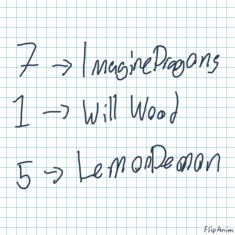 7 → ImagineDragons
1 → Will Wood
5 → LemonDemon
FlipAnim